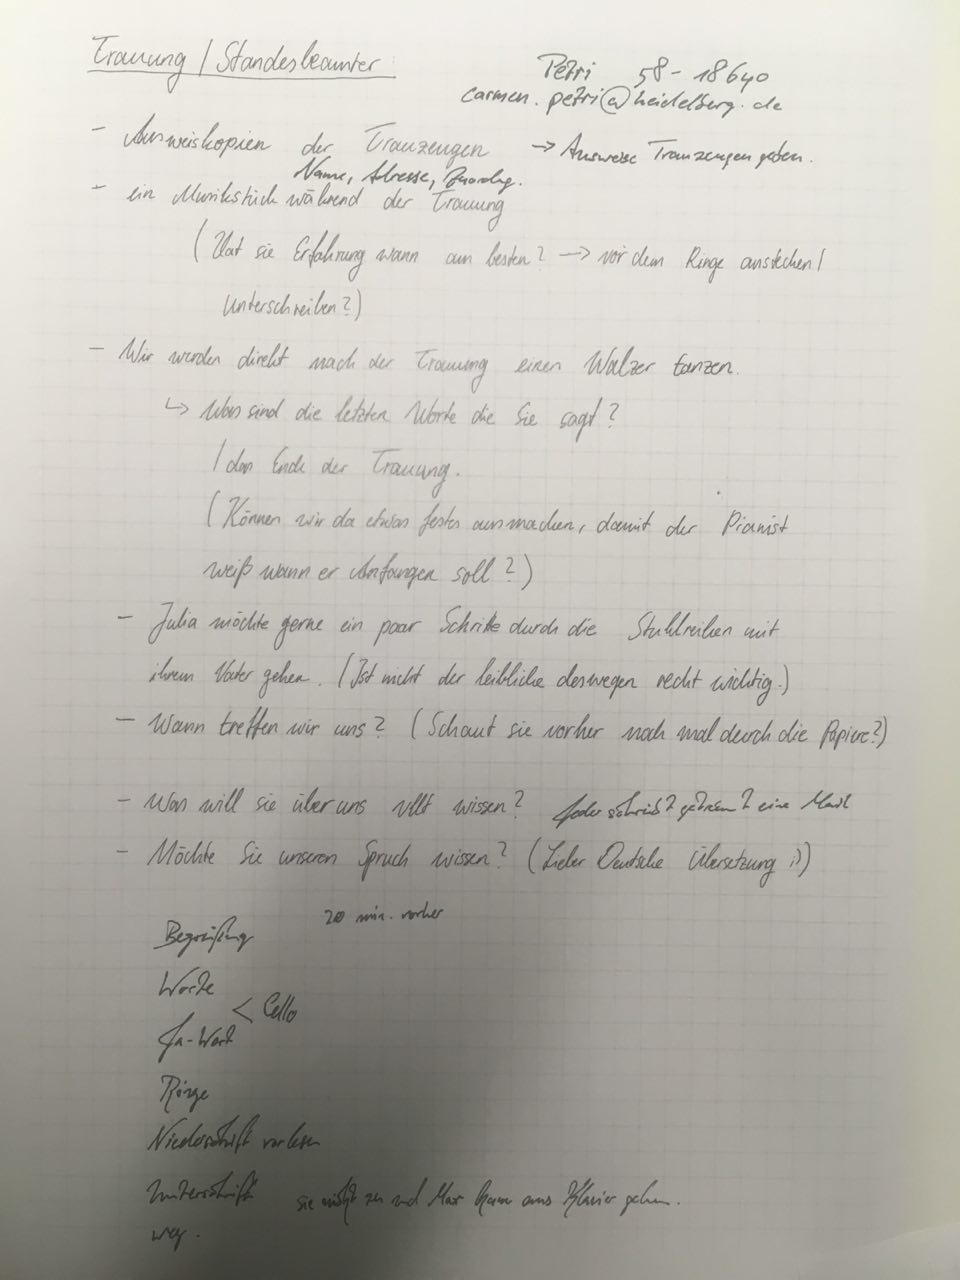 Trauung / Standesbeamter:
Petri 58-18640
carmen.petri@heidelberg.de
- Ausweiskopien der Trauzeugen → Ausweise Trauzeugen geben.
Name, Adresse,
- ein Musikstück während der Trauung
(Hat sie Erfahrung wann am besten? → vor dem Ringe anstecken /
Unterschreiben?)
- Wir werden direkt nach der Trauung einen Walzer tanzen.
↳ Was sind die letzten Worte die Sie sagt?
/ das Ende der Trauung.
(Können wir da etwas festes ausmachen, damit der Pianist
weiß wann er Anfangen soll?)
- Julia möchte gerne ein paar Schritte durch die Stuhlreihen mit
ihrem Vater gehen. (Ist nicht der leibliche deswegen recht wichtig.)
- Wann treffen wir uns? (Schaut sie vorher noch mal durch die Papiere?)
- Was will sie über uns vllt wissen? Jeder schreibt getrennt eine Mail
- Möchte Sie unseren Spruch wissen? (Lieber Deutsche Übersetzung ;))
20 min. vorher
Begrüßung
Worte
< Cello
Ja-Wort
Ringe
Niederschrift vorlesen
Unterschrift sie nickt zu und Max kann ans Klavier gehen.
weg.